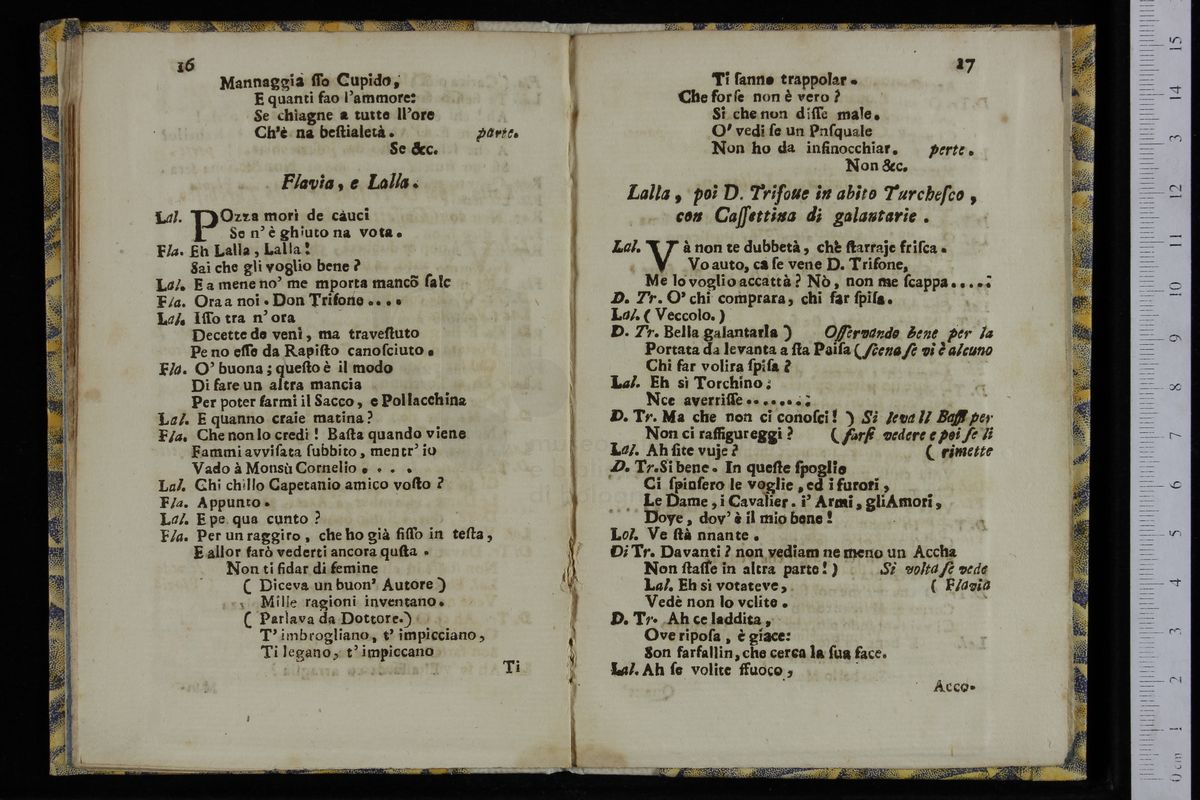 16
Mannaggia ſſo Cupido,
E quanti fao l'ammore:
Se chiagne a tutte ll'ore
Ch'è na beſtialetà. parte.
Se &c.
Flavia, e Lalla.
Lal. POzza morì de càuci
Se n'è ghiuto na vota.
Fla. Eh Lalla, Lalla!
Sai che gli voglio bene?
Lal. E a mene no' me mporta mancõ ſale
Fla. Ora a noi. Don Trifone....
Lal. Iſſo tra n'ora
Decette de venì, ma traveſtuto
Pe no eſſe da Rapiſto canoſciuto.
Fla. O' buona; queſto è il modo
Di fare un altra mancia
Per poter farmi il Sacco, e Pollacchina
Lal. E quanno craie matina?
Fla. Che non lo credi! Baſta quando viene
Fammi avviſata ſubbito, mentr'io
Vado à Monsù Cornelio....
Lal. Chi chillo Capetanio amico voſto?
Fla. Appunto.
Lal. E pe qua cunto?
Fla. Per un raggiro, che ho già fiſſo in teſta,
E allor farò vederti ancora quſta.
Non ti fidar di femine
( Diceva un buon' Autore )
Mille ragioni inventano.
( Parlava da Dottore.)
T'imbrogliano, t'impicciano,
Ti legano, t'impiccano
Ti
17
Ti fanno trappolar.
Che forſe non è vero?
Sì che non diſſe male.
O' vedi ſe un Pnſquale
Non ho da infinocchiar. perte.
Non &c.
Lalla, poi D. Trifoue in abito Turcheſco,
con Caſſettina di galantarie.
Lal. Và non te dubbetà, chè ſtarraje friſca.
Vo auto, ca ſe vene D. Trifone,
Me lo voglio accattà? Nò, non me ſcappa.....:
D. Tr. O' chi comprara, chi far ſpiſa.
Lal. ( Veccolo.)
D. Tr. Bella galantarla ) Oſſervando bene per la
Portata da levanta a ſta Paiſa ( ſcena ſe vi è alcuno
Chi far volira ſpiſa?
Lal. Eh sì Torchino;
Nce averriſſe.......:
D. Tr. Ma che non ci conoſci! ) Si leva ll Baffi per
Non ci raffigureggi? ( farſi vedere e poi ſe li
Lal. Ah ſite vuje? ( rimette
D. Tr. Sì bene. In queſte ſpoglie
Ci ſpinſero le voglie, ed i furori,
Le Dame, i Cavalier. i' Armi, gli Amori,
Dove, dov' è il mio bene!
Lol. Ve ſtà nnante.
Di Tr. Davanti? non vediam ne meno un Accha
Non ſtaſſe in altra parte!) Si volta ſe vede
Lal. Eh sì votateve, ( Flavia
Vedè non lo velite.
D. Tr. Ah ce laddita,
Ove ripoſa, è giace:
Son farfallin, che cerca la ſua face.
Lal. Ah ſe volite ffuoco,
Acco-